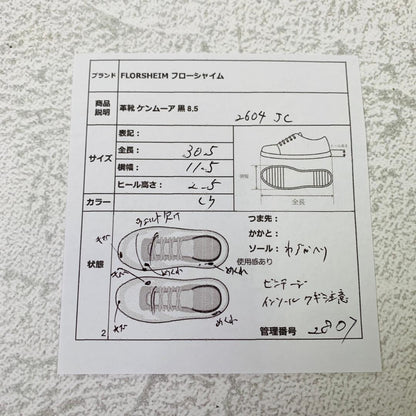 ブランド FLORSHEIM フローシャイム
商品説明 革靴 ケンムーア 黒 8.5
2604 JC
サイズ
表記：
全長： 30.5
横幅： 11.5
ヒール高さ： 2.5
ヒール高さ
横幅
全長
カラー
状態
つま先：
かかと：
ソール： わずかヘリ
使用感あり
キズ
キズ
めくれ
めくれ
キズ
めくれ
ビンテージ
インソール クギ注意
管理番号 2807
2